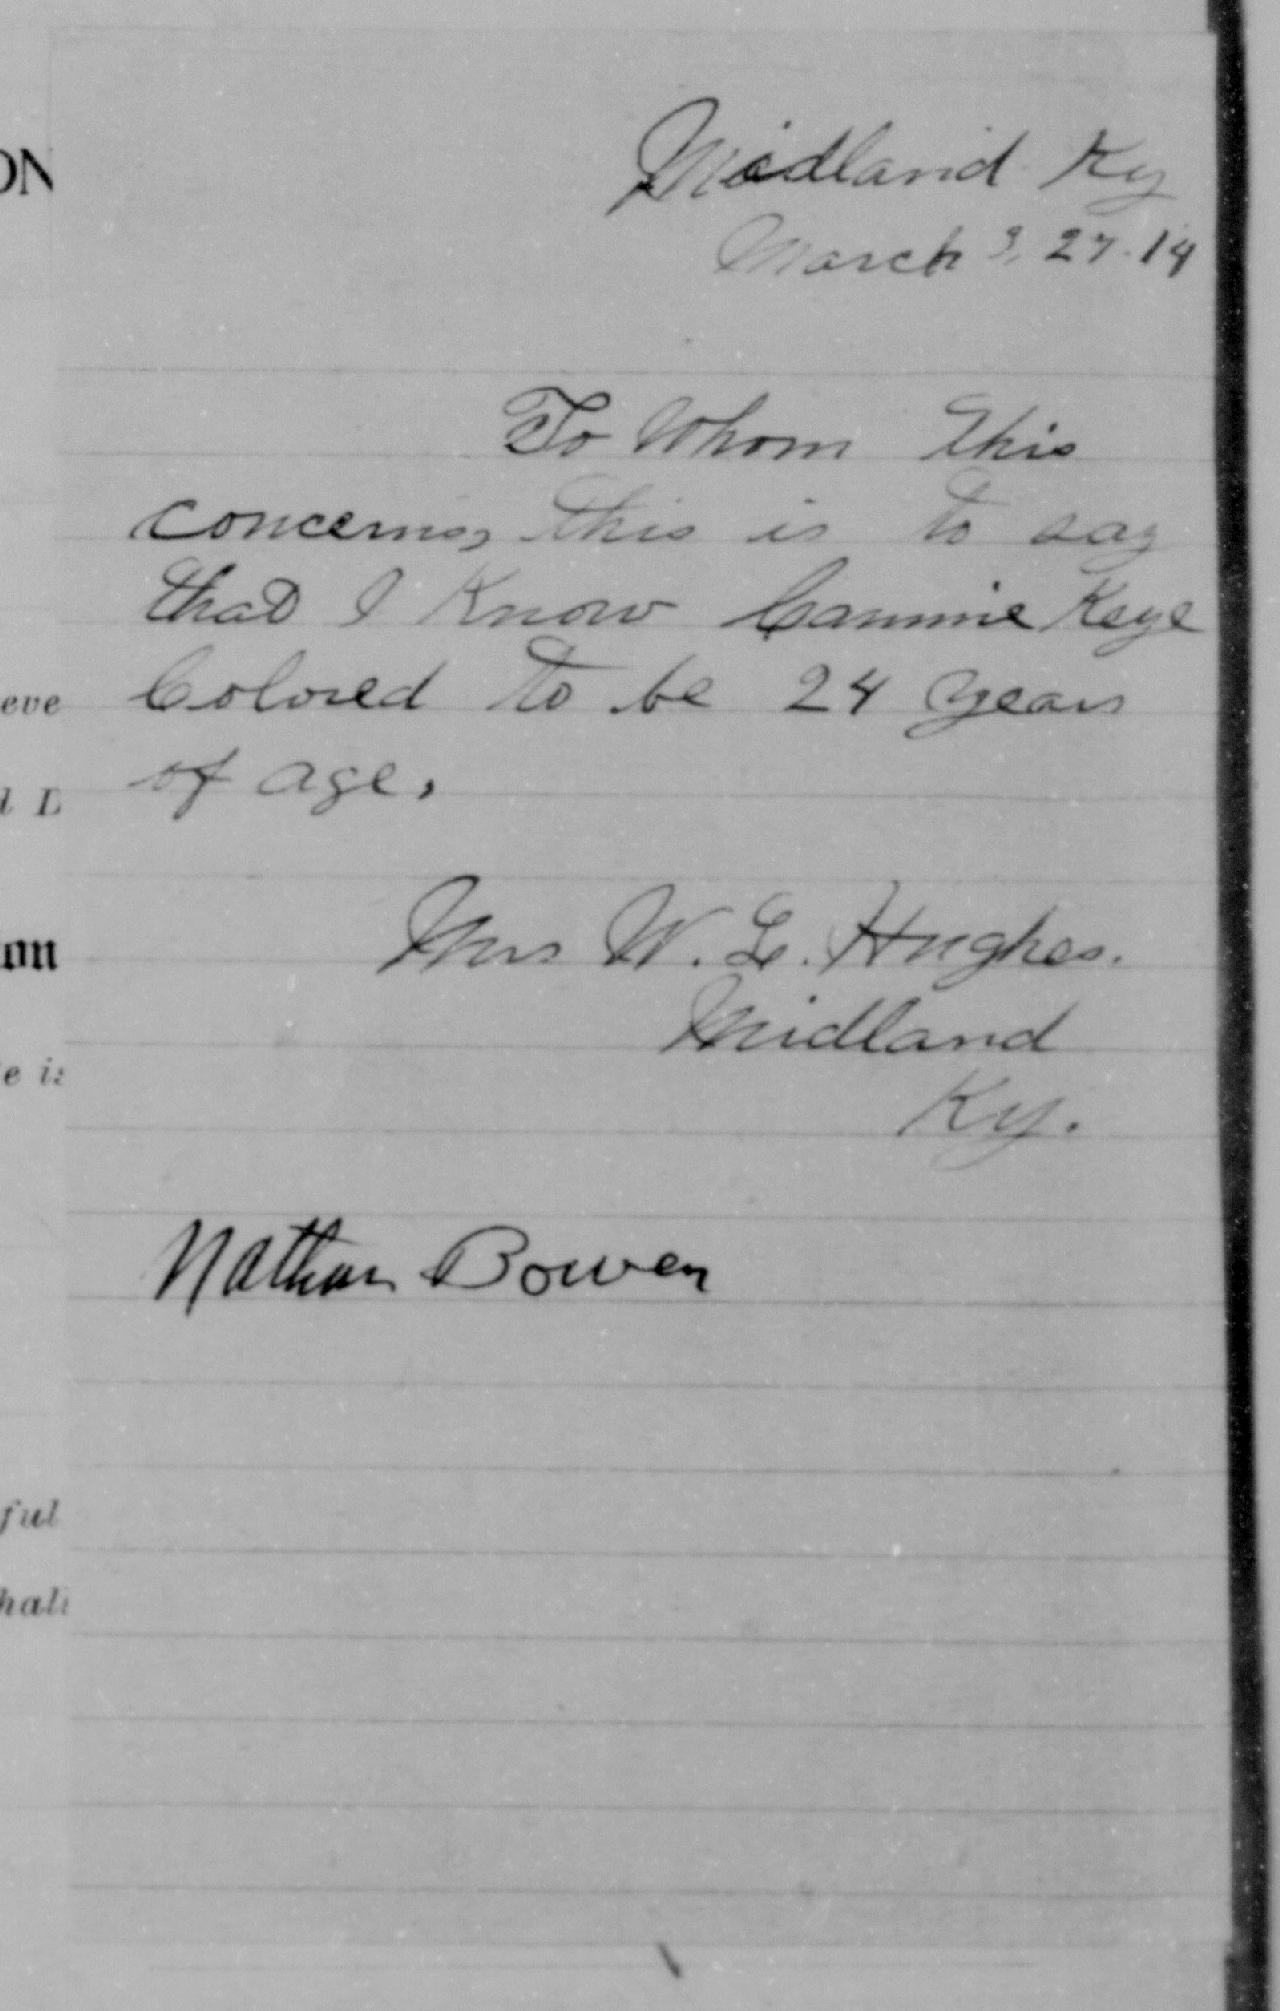 ON
Midland Ky
March 3, 27.14
To Whom this
concerns, this is to say
that I Know Cammie Keye
eve
Colored to be 24 years
d D
of age.
Mrs W. L. Hughes.
ion
Midland
e is
Ky.
Nathan Bowen
ful
hall